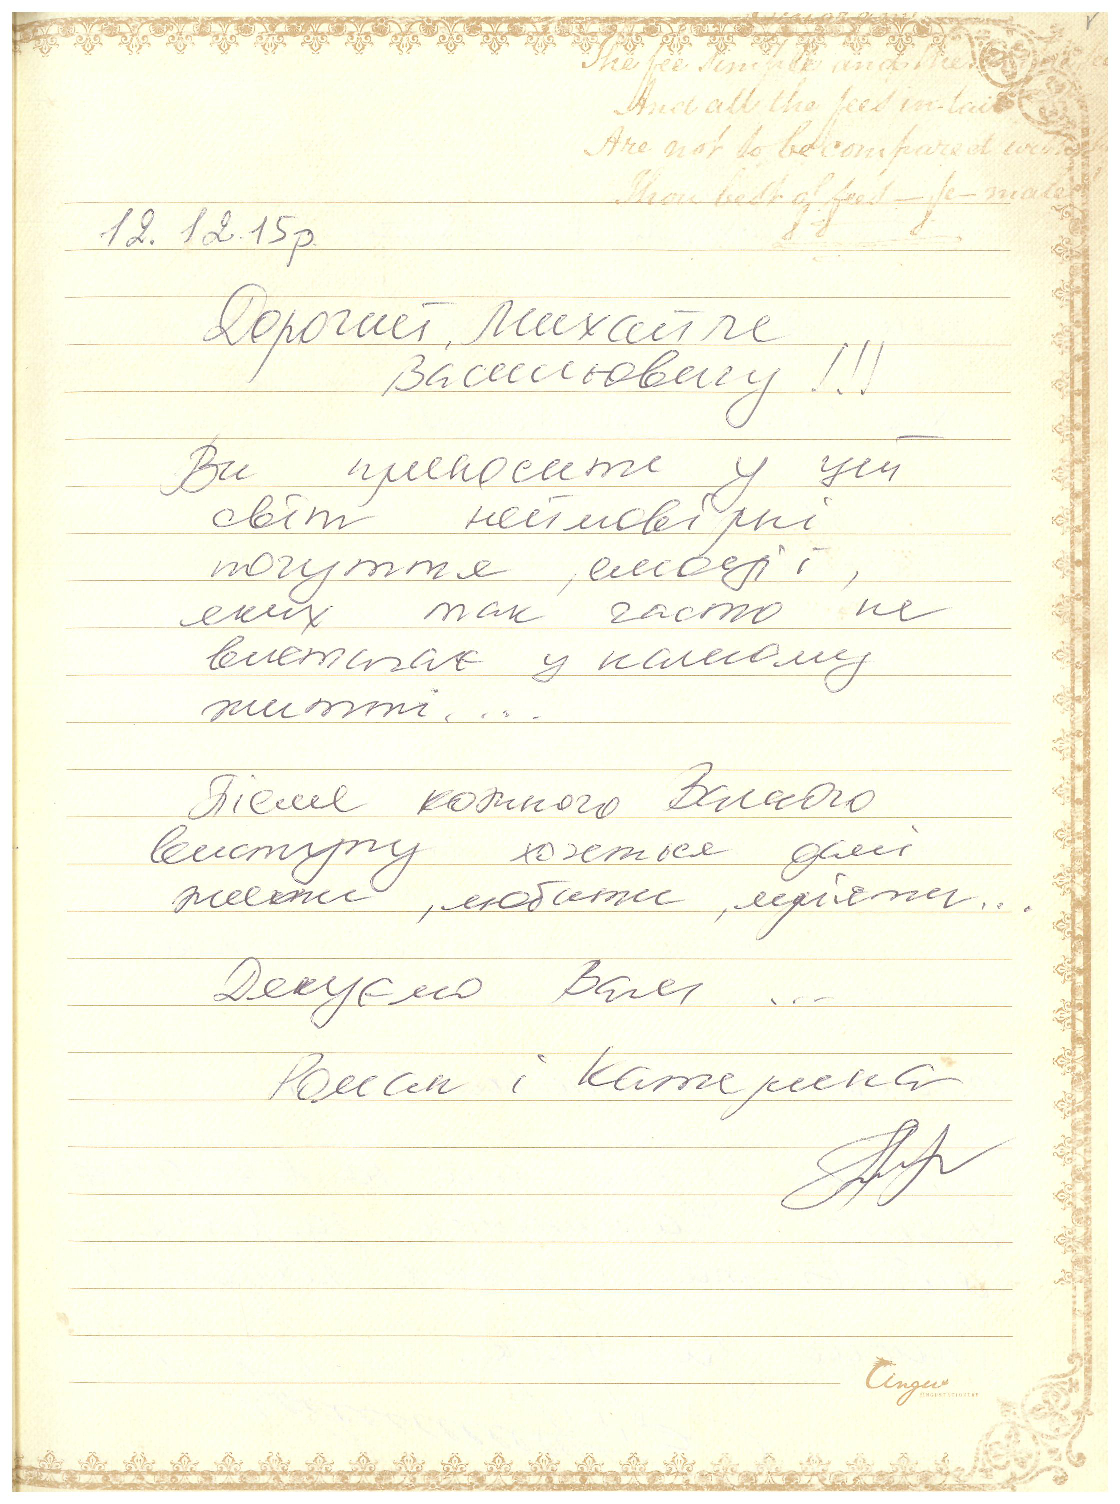 The fee simple and the
And all the fees in tail
Are not to be compared with
Thou best of fees – fe-male!
12.12.15р.
Дорогий, Михайле
Васильовичу!!!
Ви приносите у цей
світ неймовірні
почуття, емоції,
яких так часто не
вистачає у нашому
житті....
Після кожного Вашого
виступу хочеться далі
жити, любити, мріяти...
Дякуємо Вам ...
Роман і Катерина